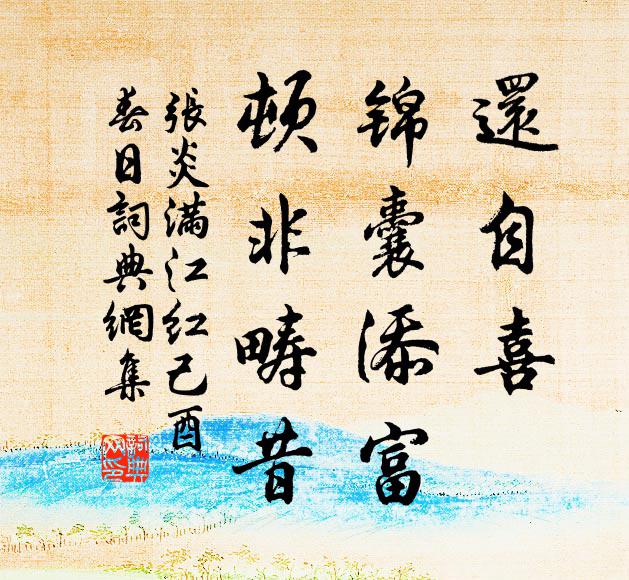 還自喜
锦囊添富
頓非疇昔
張炎满江红己酉
春日詞典網集